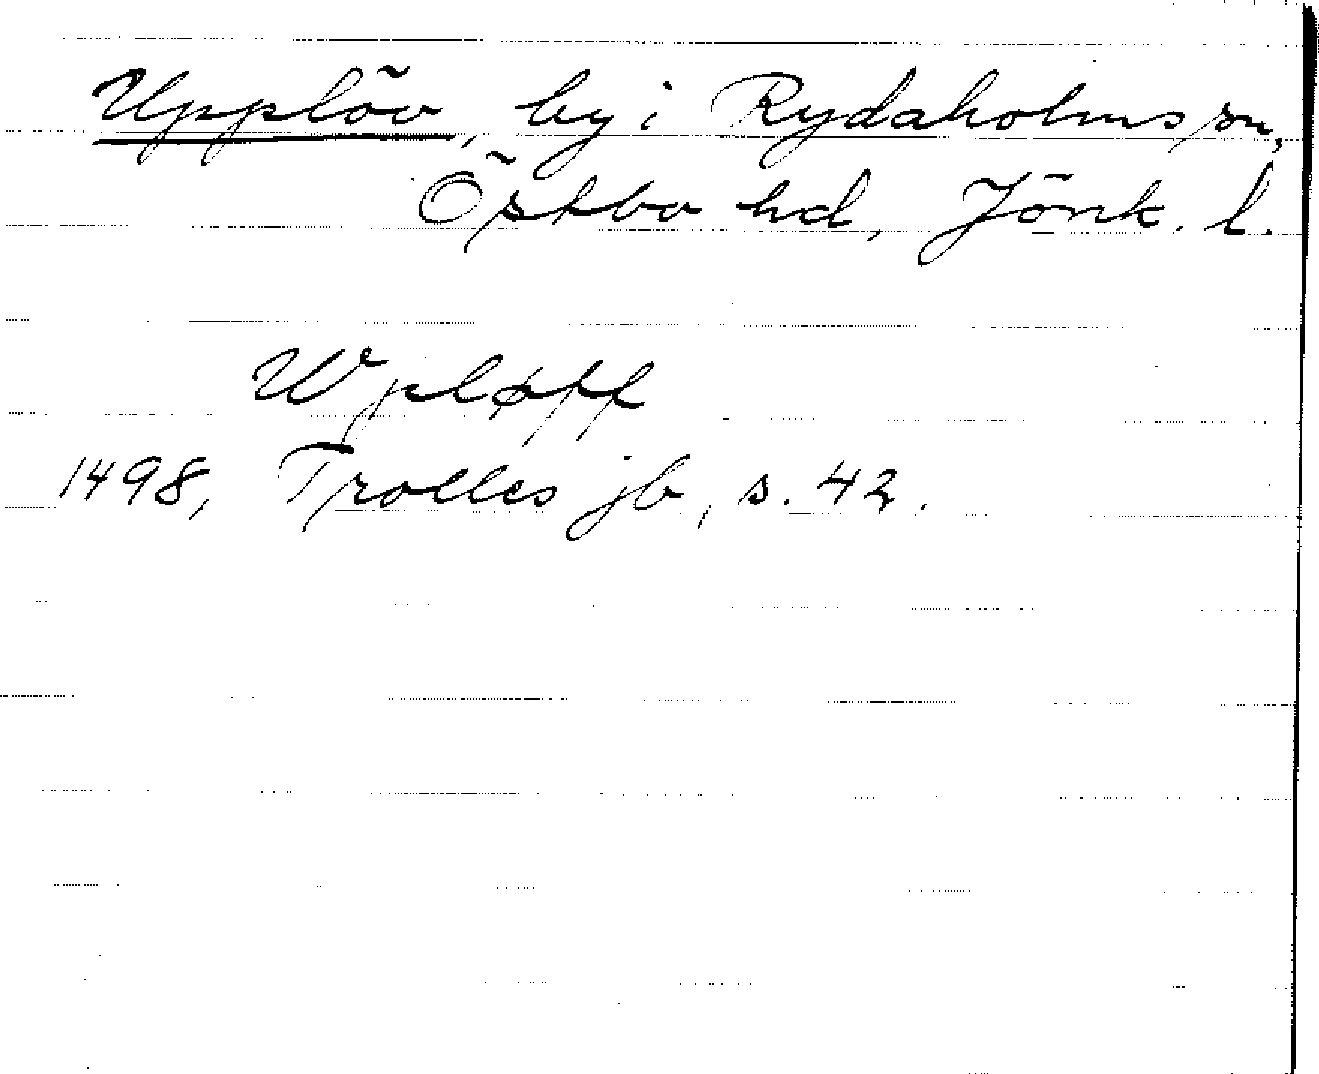 Upplöv, by i Rydaholms sn,
Östbo hd, Jönk. l.
Wpløff
1498, Trolles jb, s. 42.